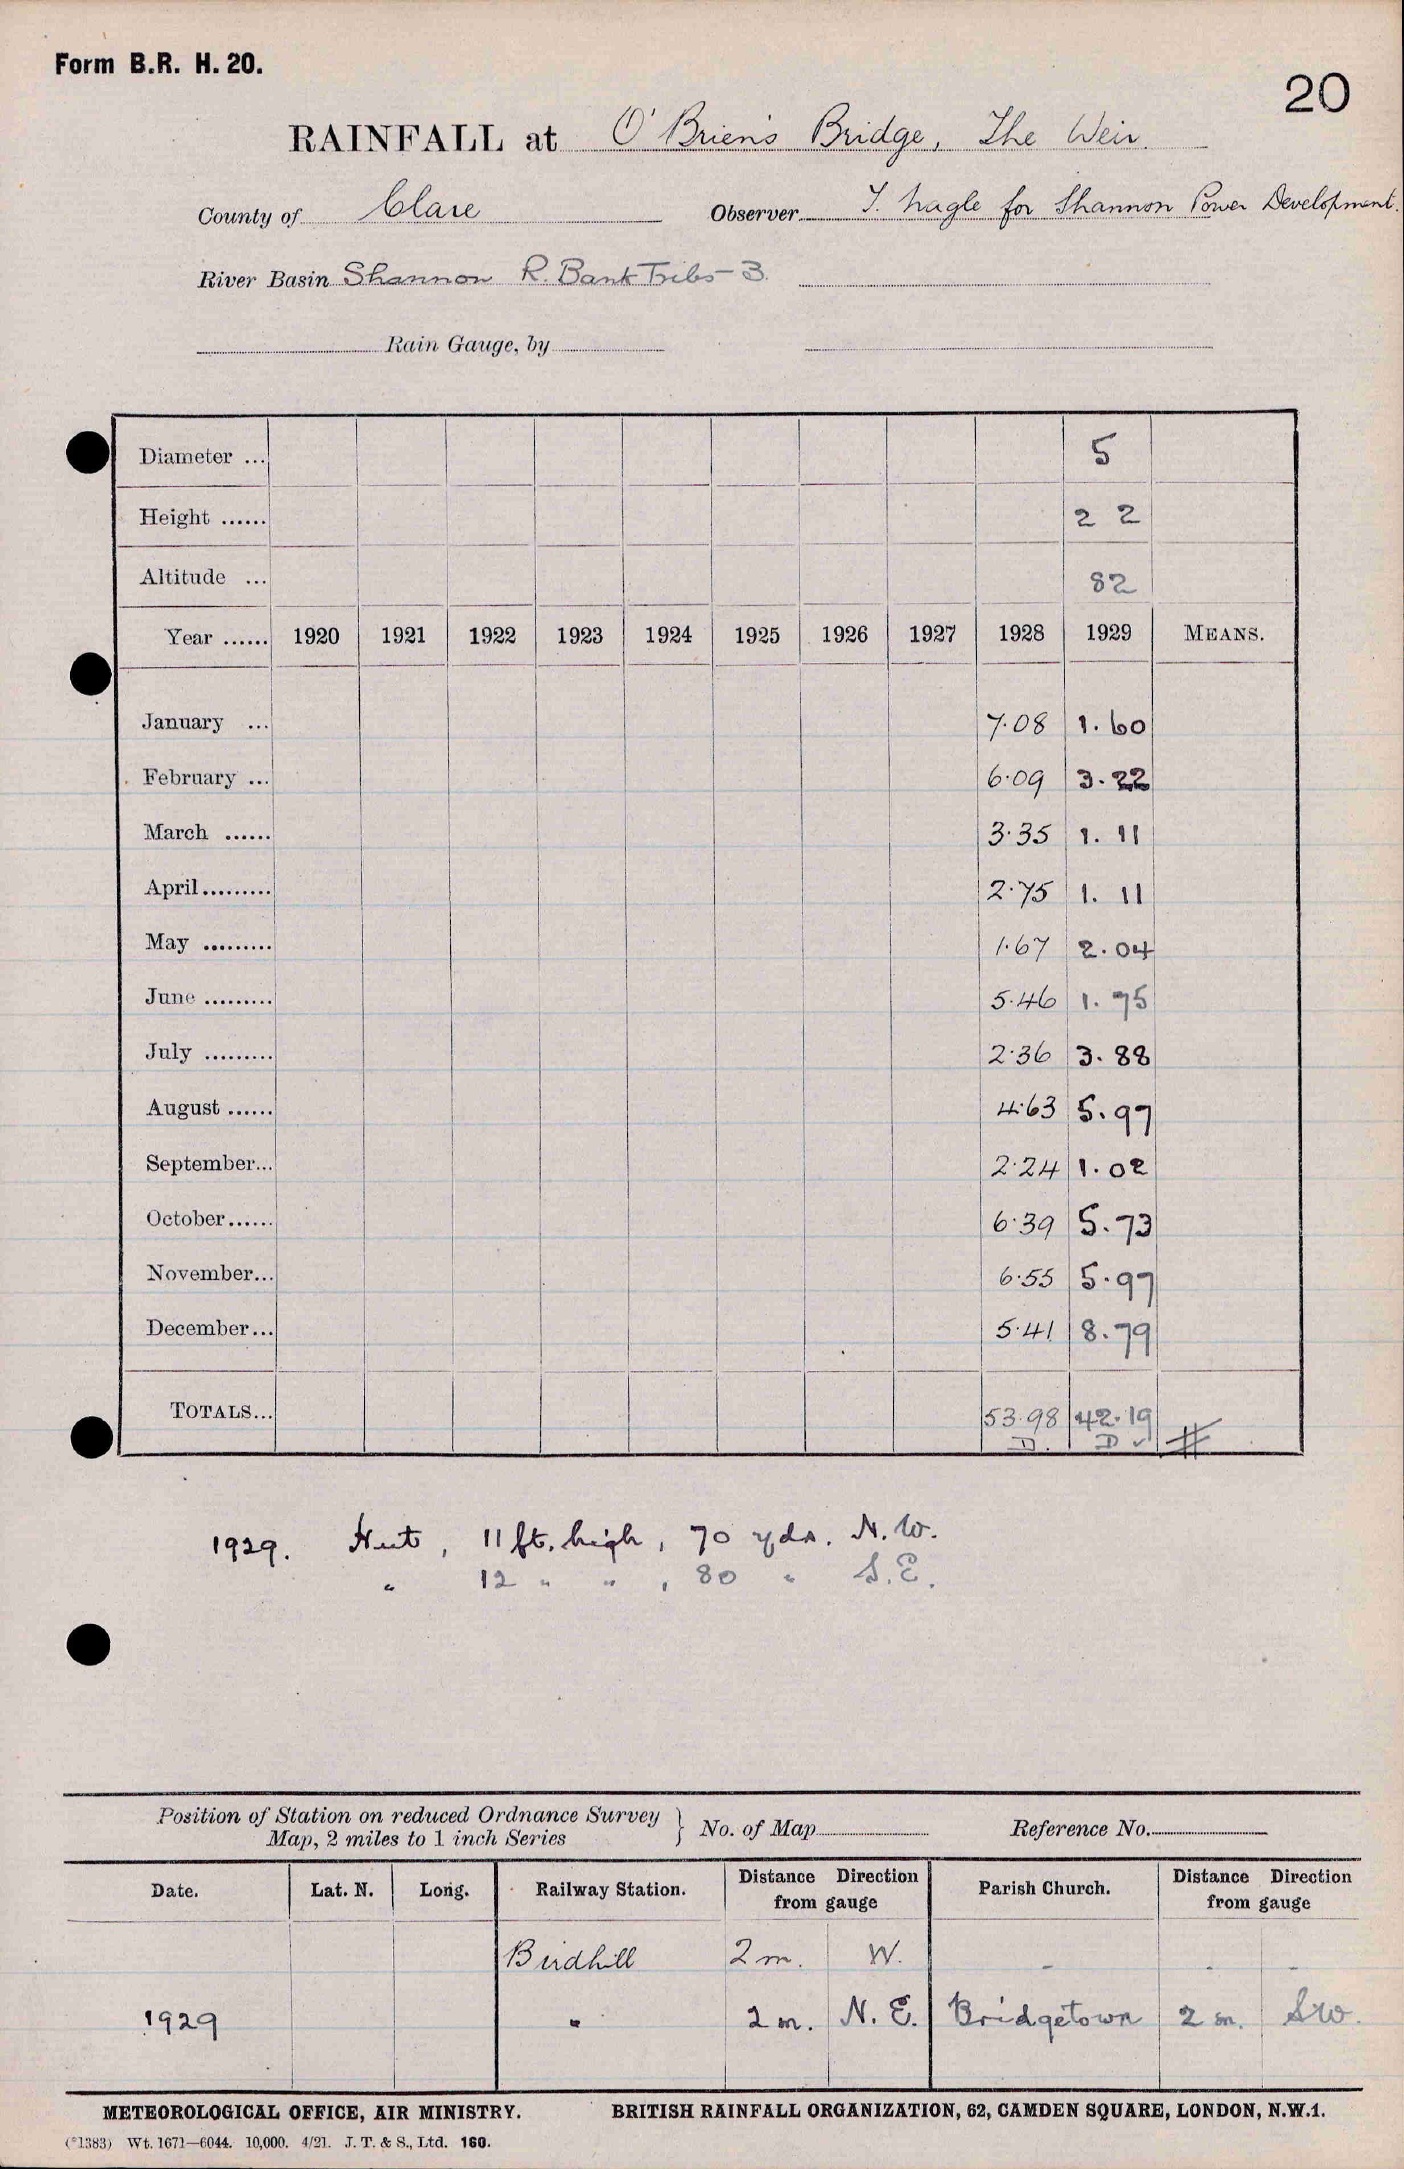 Form B.R. H. 20.
20
RAINFALL at O'Brien's Bridge, The Weir.
County of Clare Observer T. Nagle for Shannon Power Development.
River Basin Shannon R. Bank Tribs - 3.
Rain Gauge, by
Diameter ... 5
Height ...... 2 2
Altitude ... 82
Year ...... 1920 1921 1922 1923 1924 1925 1926 1927 1928 1929 MEANS.
January ... 7.08 1.60
February ... 6.09 3.22
March ...... 3.35 1.11
April......... 2.75 1.11
May ......... 1.67 2.04
June ......... 5.46 1.75
July ......... 2.36 3.88
August ...... 4.63 5.97
September... 2.24 1.02
October...... 6.39 5.73
November... 6.55 5.97
December... 5.41 8.79
TOTALS... 53.98 42.19
D. D ✓ #
1929. Hut, 11 ft. high, 70 yds. N.W.
" 12 " " , 80 " S.E.
Position of Station on reduced Ordnance Survey
Map, 2 miles to 1 inch Series } No. of Map Reference No.
Date. Lat. N. Long. Railway Station. Distance Direction from gauge Parish Church. Distance Direction from gauge
Birdhill 2 m. W. - - -
1929 " 2 m. N.E. Bridgetown 2 m. SW.
METEOROLOGICAL OFFICE, AIR MINISTRY. BRITISH RAINFALL ORGANIZATION, 62, CAMDEN SQUARE, LONDON, N.W.1.
(*1383) Wt. 1671—6044. 10,000. 4/21. J. T. & S., Ltd. 160.